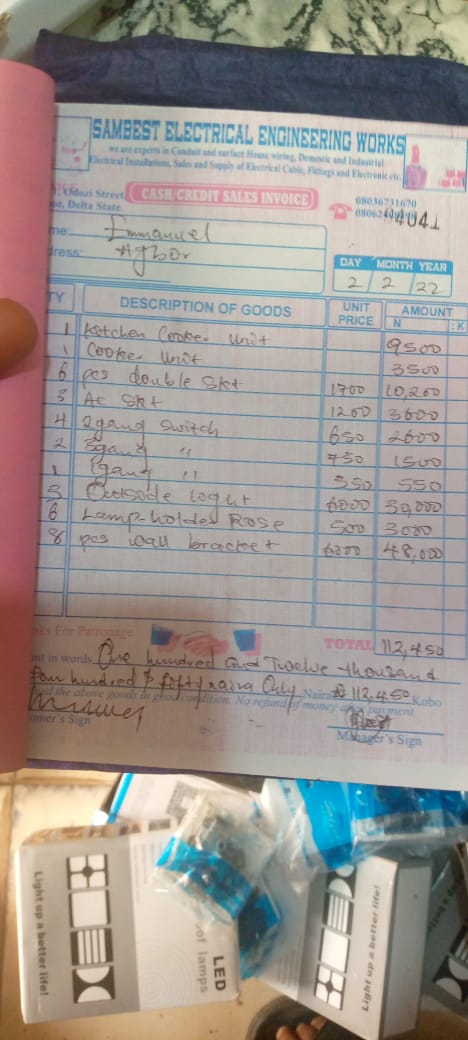 SAMBEST ELECTRICAL ENGINEERING WORKS
we are experts in Conduit and surface House wiring, Domestic and Industrial
Electrical Installations, Sales and Supply of Electrical Cable, Fittings and Electronic etc.
Udozi Street,
Delta State.
CASH/CREDIT SALES INVOICE
08036731670
04041
me: Emmanuel
dress: Agbor
DAY MONTH YEAR
2 / 2 / 22
TY DESCRIPTION OF GOODS UNIT PRICE AMOUNT
N : K
1 Kitchen Cooker unit 9500
1 Cooker unit 3500
6 pcs double Skt 1700 10,200
3 Ac Skt 1200 3600
4 2gang Switch 650 2600
2 3gang " 750 1500
1 1gang " 550 550
5 Outside light 6000 30,000
6 Lamp-holder Rose 500 3000
8 pcs wall bracket 6000 48,000
ks For Patronage
TOTAL 112,450
nt in words One hundred and Twelve thousand
four hundred & fifty naira Only Naira ₦ 112,450 Kobo
ed the above goods in good condition. No refund of money after payment
omer's Sign
Manager's Sign
Light up a better life!
of lamps
LED
Light up a better life!